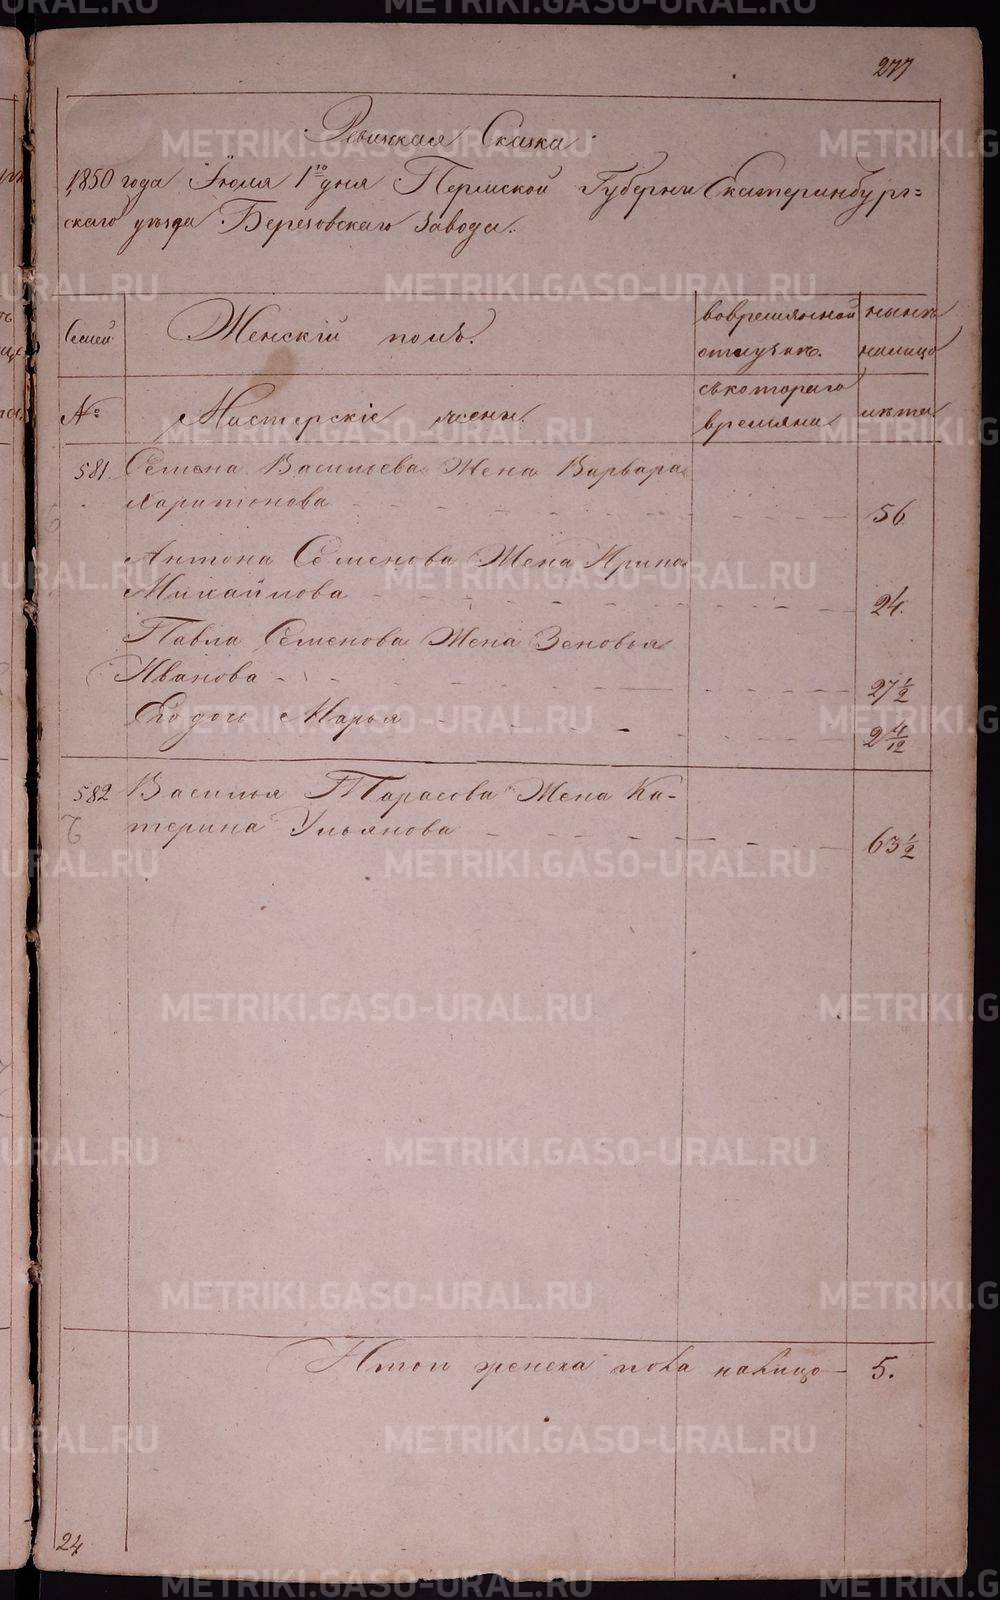 277
Ревижкая Сказка
1850 года Іюля 1го дня Пермской Губерни Екатеринбург=
скаго уѣзда Березовскаго Завода.
Семей
Женскій полъ.
вовремянной
отлучкѣ.
нынѣ
налицо
№
Мастерскіе жены.
съкотораго
времяни
лѣта
581
Семена Васильева Жена Варвара
Харитонова
56
Антона Семенова Жена Ирина
Михайлова
24
Павла Семенова Жена Зеновья
Иванова
27 1/2
Его дочь Марья
2 4/12
582
Василья Тарасова Жена Ка-
терина Ульянова
63 1/2
Итого женска пола налицо
5.
24
METRIKI.GASO-URAL.RU